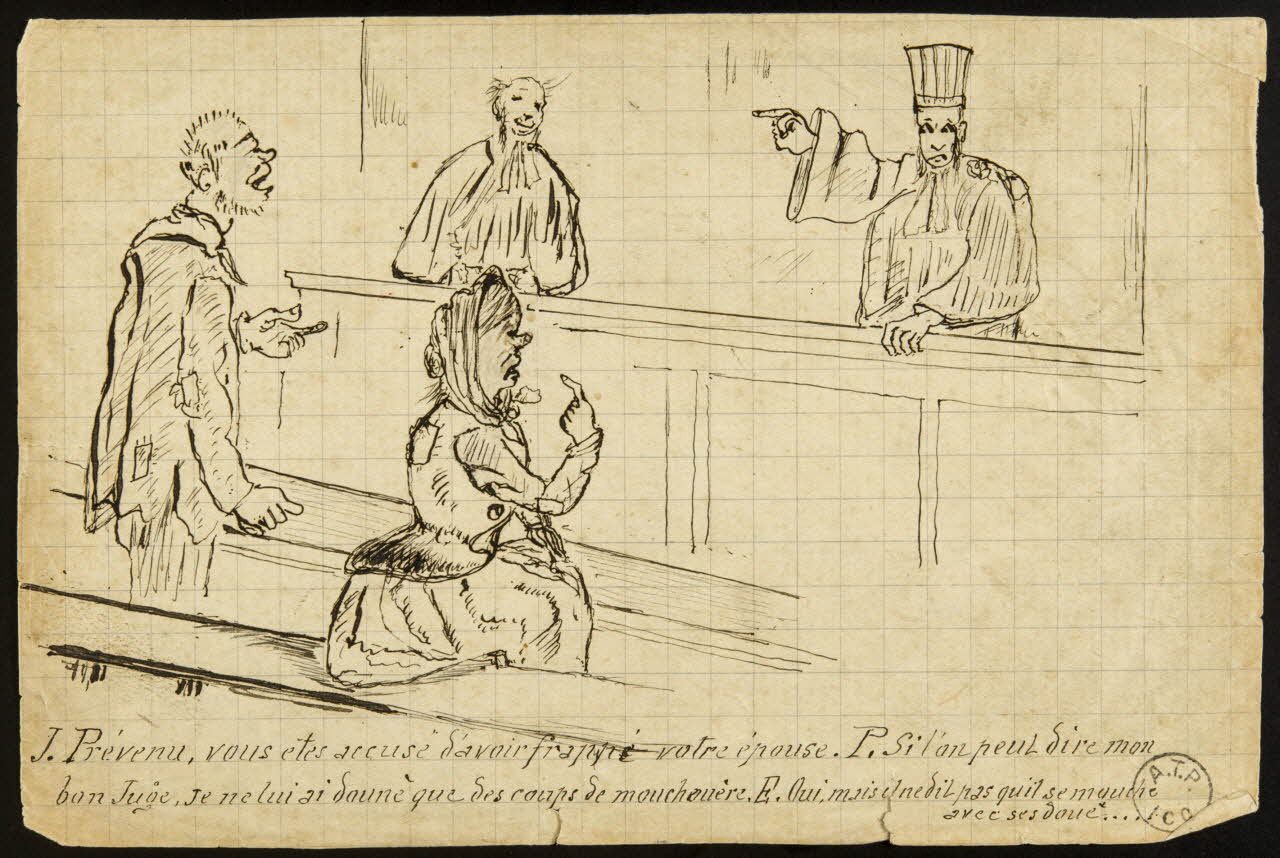 J. Prévenu, vous etes accusé d'avoir frappé votre épouse. P. Si l'on peut dire mon
bon Juge, je ne lui ai donné que des coups de mouchouère. E. Oui, mais il ne dit pas qu'il se mouche
avec ses doué....
A.T.P.